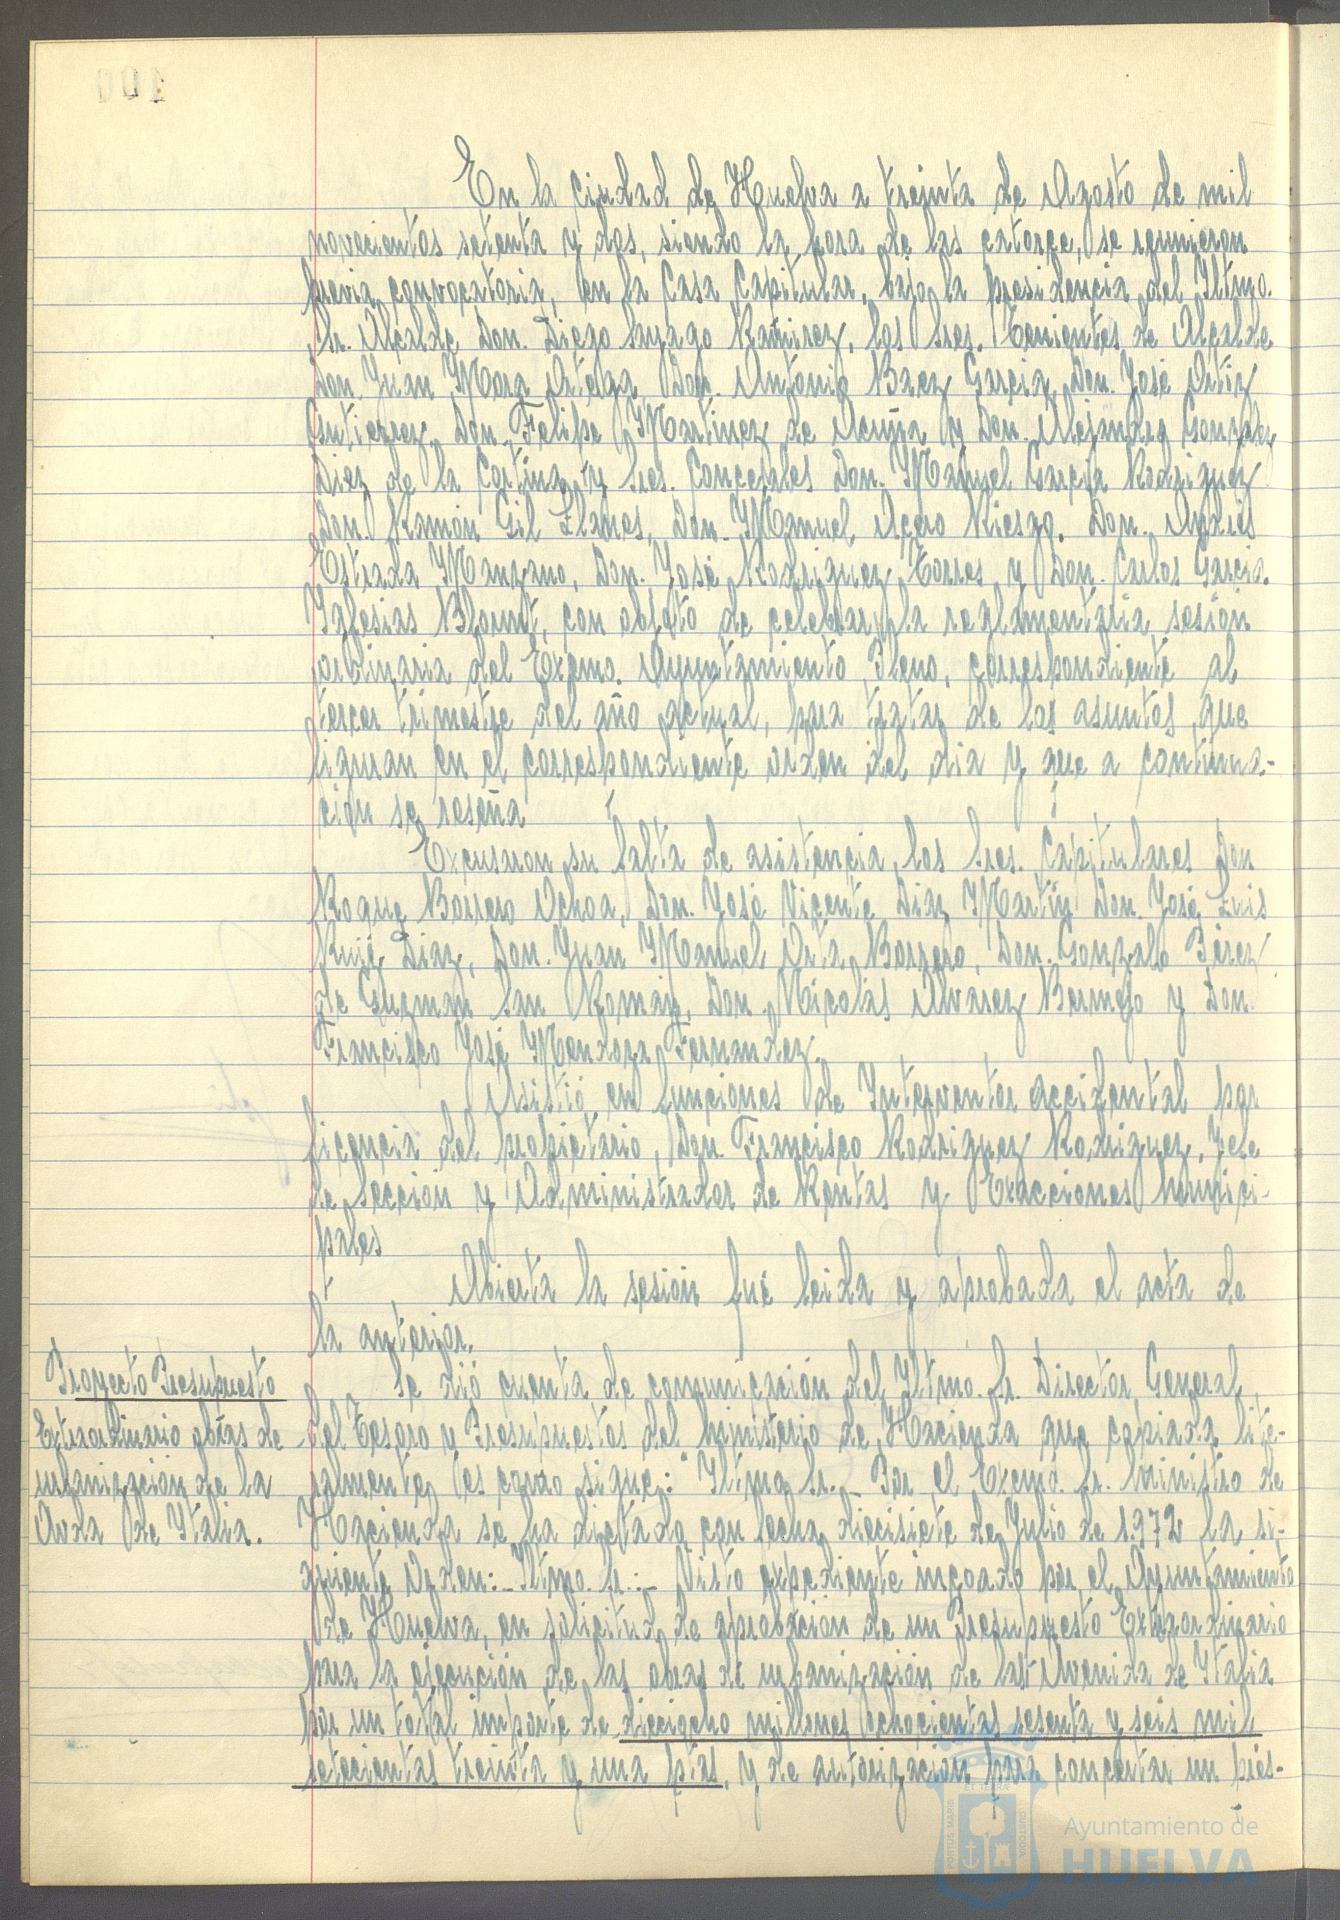 En la ciudad de Huelva a treinta de Agosto de mil
novecientos setenta y dos, siendo la hora de las catorce, se reunieron
previa convocatoria, en la Casa Capitular, bajo la presidencia del Iltmo.
Sr. Alcalde Don. Diego Sayago Ramirez, los Sres. Tenientes de Alcalde
Don. Juan Mora Ortega Don. Antonio Baez Garcia, Don. José Ortiz
Gutierrez, Don. Felipe Martinez de Acuña y Don. Alejandro Gonzalez
Diez de la Cortina, y Sres. Concejales Don. Manuel Garcia Rodriguez
Don. Ramón Gil Llanes, Don. Manuel Acero Riesgo, Don.
Estrada Manzano, Don. José Rodriguez Torres y Don. Carlos Garcia.
Yglesias Blount, con objeto de celebrar la reglamentaria sesión
ordinaria del Excmo. Ayuntamiento Pleno, correspondiente al
tercer trimestre del año actual, para tratar de los asuntos que
figuran en el correspondiente orden del dia y que a continua-
ción se reseña
Excusaron su falta de asistencia, los Sres. Capitulares Don
Roque Borrero Ochoa, Don. José Vicente Diaz Martin Don. José Luis
Ruiz Diaz, Don. Juan Manuel Orta Borrero, Don. Gonzalo Pérez
de Guzman San Roman, Don. Nicolás Alvarez Bermejo y Don.
Francisco José Mendoza Fernandez.
Asistió en funciones de Interventor accidental por
licencia del propietario, Don. Francisco Rodriguez Rodriguez, Jefe
de Sección y Administrador de Rentas y Exacciones Munici-
pales
Abierta la sesión fué leida y aprobada el acta de
la anterior.
Proyecto Presupuesto
Extraordinario obras de
urbanización de la
Avda de Italia.
Se dió cuenta de comunicación del Iltmo. Sr. Director General
del Tesoro y Presupuestos del Ministerio de Hacienda que copiada lite-
ralmente es como sigue: "Iltmo Sr. - Por el Excmo. Sr. Ministro de
Hacienda se ha dictado con fecha diecisiete de Julio de 1.972 la si-
guiente Orden: - Iltmo. Sr.: - Visto expediente incoado por el Ayuntamiento
de Huelva, en solicitud de aprobación de un Presupuesto Extraordinario
para la ejecución de las obras de urbanización de la Avenida de Italia
por un total importe de dieciocho millones ochocientas sesenta y seis mil
setecientas treinta y una ptas, y de autorización para concertar un prés-
Ayuntamiento de
HUELVA